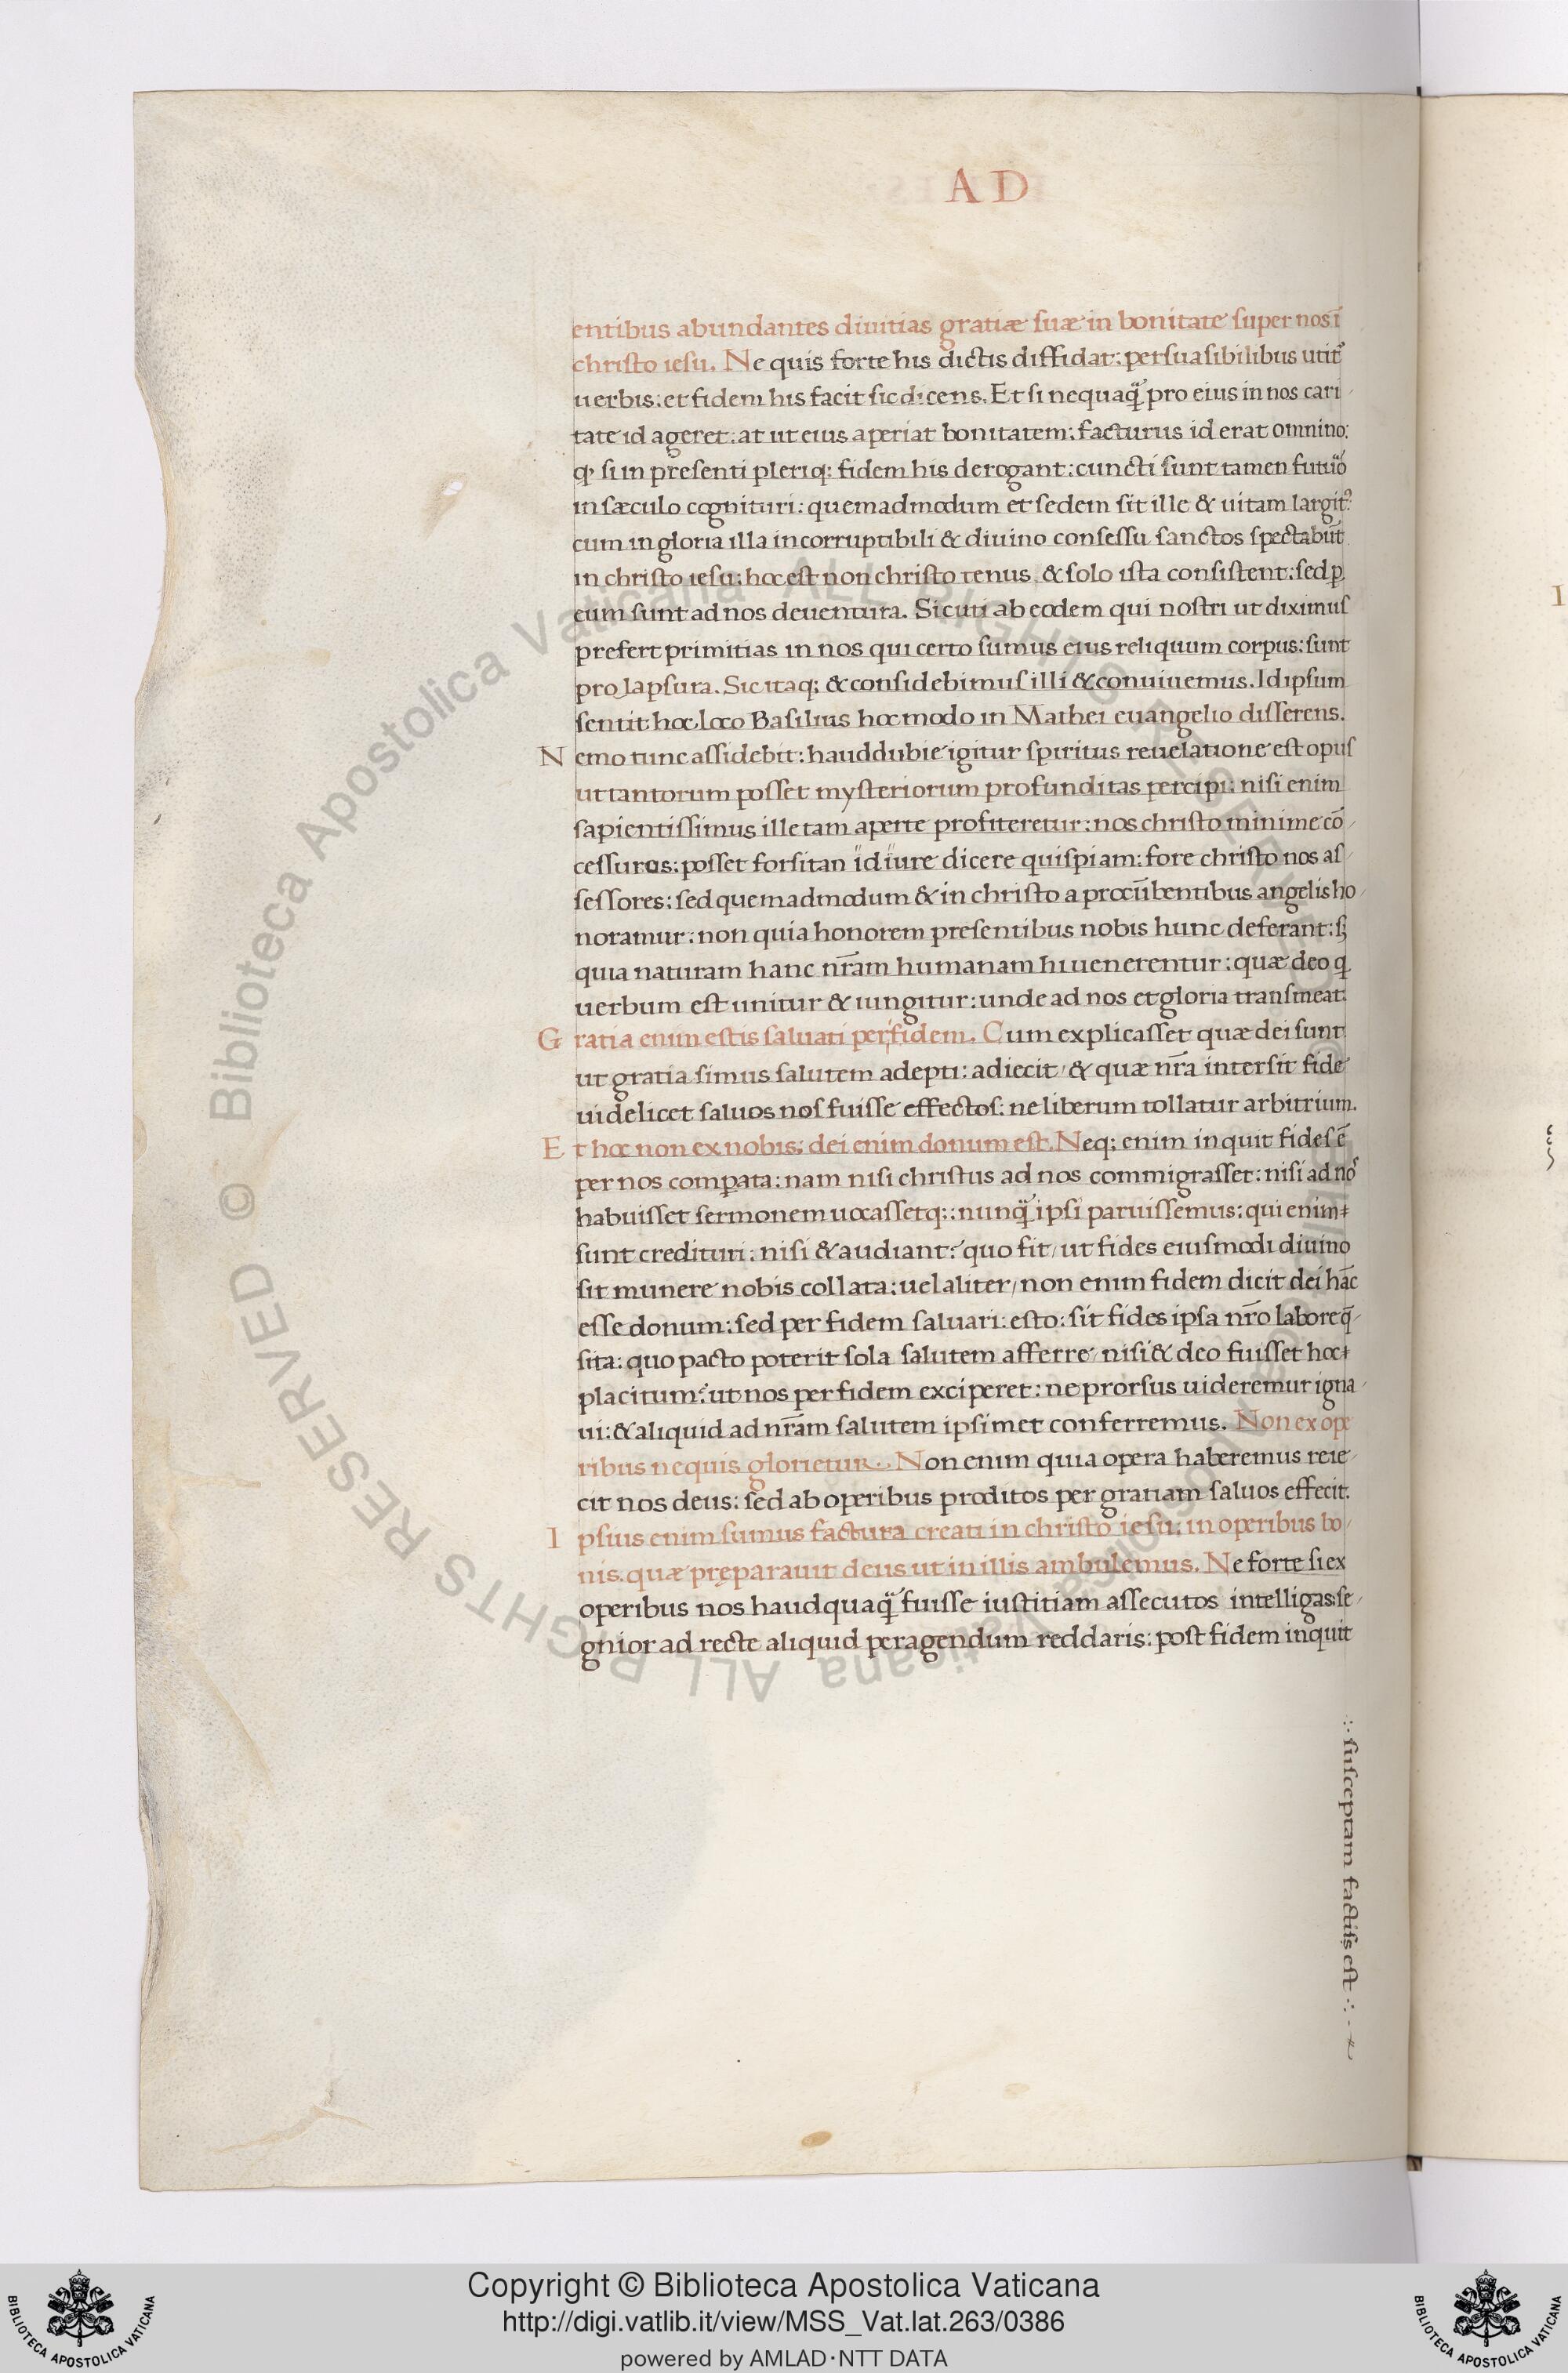 AD
entibus abundantes diuitias gratiæ suæ in bonitate super nos ī
christo iesu. Ne quis forte his dictis diffidat: persuasibilibus utit᷑
uerbis: et fidem his facit sic dicens. Et si nequaq̃ pro eius in nos cari
tate id ageret: at ut eius aperiat bonitatem: facturus id erat omnino:
qꝫ si in presenti pleriqꝫ fidem his derogant: cuncti sunt tamen futuro
in sæculo cognituri: quemadmodum et sedem sit ille & uitam largit᷑
cum in gloria illa incorruptibili & diuino consessu sanctos spectabūt
in christo iesu: hoc est non christo tenus & solo ista consistent: sed ꝑ
eum sunt ad nos deuentura. Sicuti ab eodem qui nostri ut diximus
prefert primitias in nos qui certo sumus eius reliquum corpus: sunt
prolapsura. Sic itaqꝫ & considebimus illi & conuiuemus. Id ipsum
sentit hoc loco Basilius hoc modo in Mathei euangelio disserens.
Nemo tunc assidebit: haud dubie igitur spiritus reuelatione est opus
ut tantorum posset mysteriorum profunditas percipi: nisi enim
sapientissimus ille tam aperte profiteretur: nos christo minime cō
cessuros: posset forsitan id iure dicere quispiam: fore christo nos as
sessores: sed quemadmodum & in christo a procūbentibus angelis ho
noramur: non quia honorem presentibus nobis hunc deferant: sꝫ
quia naturam hanc nr̄am humanam hi uenerentur: quæ deo q
uerbum est unitur & iungitur: unde ad nos et gloria transmeat.
Gratia enim estis saluati per fidem. Cum explicasset quæ dei sunt
ut gratia simus salutem adepti: adiecit / & quæ nr̄a intersit fide
uidelicet saluos nos fuisse effectos: ne liberum tollatur arbitrium.
Et hoc non ex nobis: dei enim donum est. Neqꝫ enim inquit fides ē
per nos comꝑata: nam nisi christus ad nos commigrasset: nisi ad nos
habuisset sermonem uocassetqꝫ: nunq̃ ipsi paruissemus: qui enim
sunt credituri: nisi & audiant? quo fit / ut fides eiusmodi diuino
sit munere nobis collata: uel aliter / non enim fidem dicit dei hāc
esse donum: sed per fidem saluari: esto: sit fides ipsa nr̄o labore q̄
sita: quo pacto poterit sola salutem afferre / nisi & deo fuisset hoc
placitum: ut nos per fidem exciperet: ne prorsus uideremur igna
ui: & aliquid ad nr̄am salutem ipsimet conferremus. Non ex ope
ribus nequis glorietur. Non enim quia opera haberemus reie
cit nos deus: sed ab operibus proditos per gratiam saluos effecit.
Ipsius enim sumus factura creati in christo iesu: in operibus bo
nis. quæ pręparauit deus ut in illis ambulemus. Ne forte si ex
operibus nos haudquaq̃ fuisse iustitiam assecutos intelligas: se
gnior ad recte aliquid peragendum reddaris: post fidem inquit
susceptam
est
I
Biblioteca Apostolica Vaticana ALL RIGHTS RESERVED ©
Copyright © Biblioteca Apostolica Vaticana
http://digi.vatlib.it/view/MSS_Vat.lat.263/0386
powered by AMLAD·NTT DATA
BIBLIOTECA APOSTOLICA VATICANA
BIBLIOTECA APOSTOLICA VATICANA